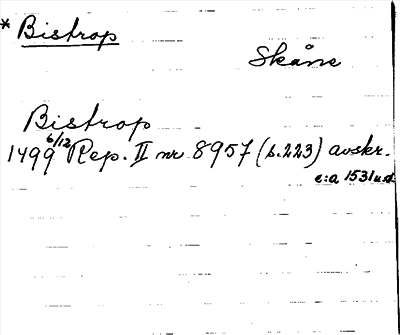 * Bistrop
Skåne
Bistrop
1499 6/12 Rep. II nr 8957 (s.223) avskr.
c:a 1531 u.d.